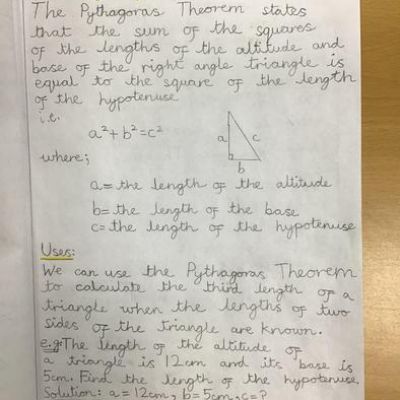 The Pythagoras Theorem states
that the sum of the squares
of the lengths of the altitude and
base of the right angle triangle is
equal to the square of the length
of the hypotenuse
i.e.
a²+b²=c²
a
c
b
where;
a= the length of the altitude
b= the length of the base
c= the length of the hypotenuse
Uses:
We can use the Pythagoras Theorem
to calculate the third length of a
triangle when the lengths of two
sides of the triangle are known.
e.g. The length of the altitude of
a triangle is 12cm and its base is
5cm. Find the length of the hypotenuse.
Solution: a=12cm, b=5cm, c=?